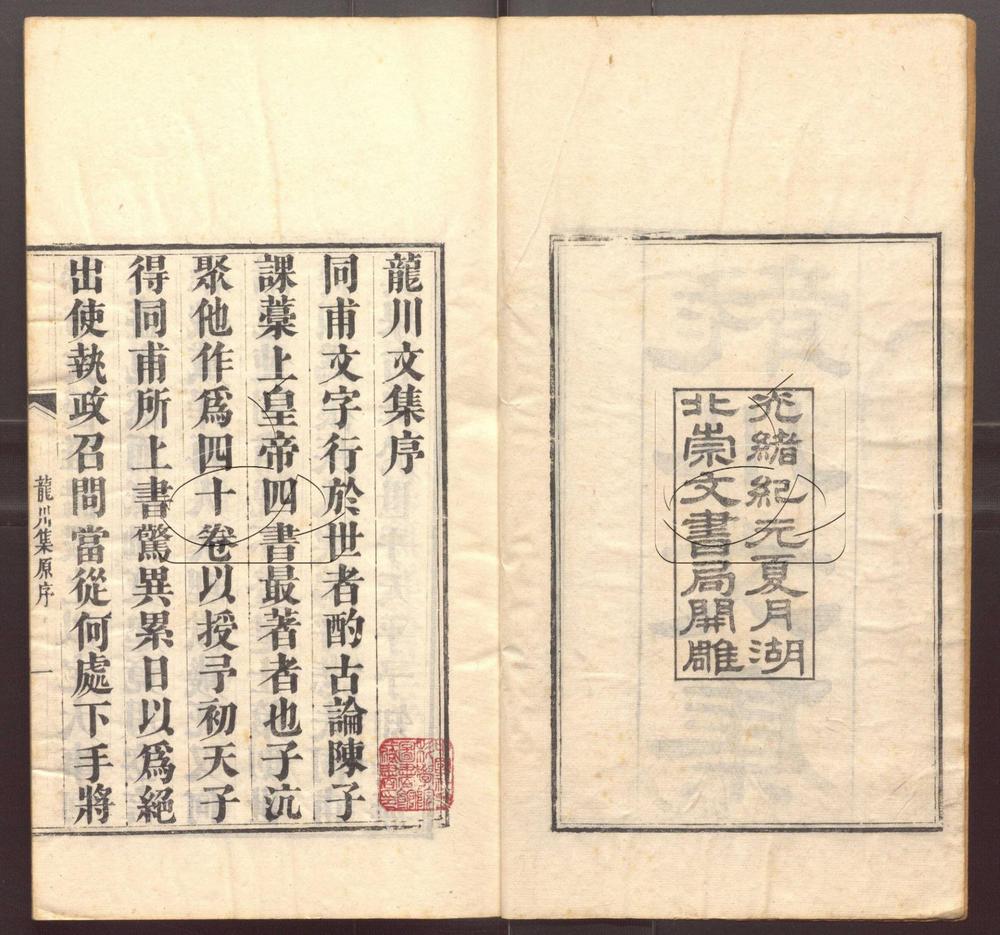 光緒紀元夏月湖
北崇文書局開雕
龍川文集序
同甫文字行於世者酌古論陳子
課藁上皇帝四書最著者也子沆
聚他作爲四十卷以授予初天子
得同甫所上書驚異累日以爲絕
出使執政召問當從何處下手將
龍川集原序
一